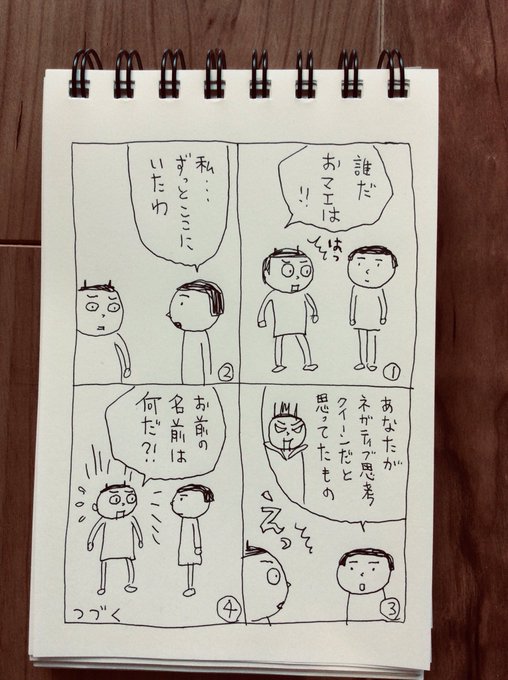 誰だ
おマエは
!!
はっ
①
私…
ずっとここに
いたわ
②
あなたが
ネガティブ思考
クイーンだと
思ってたもの
えっ
③
お前の
名前は
何だ?!
④
つづく